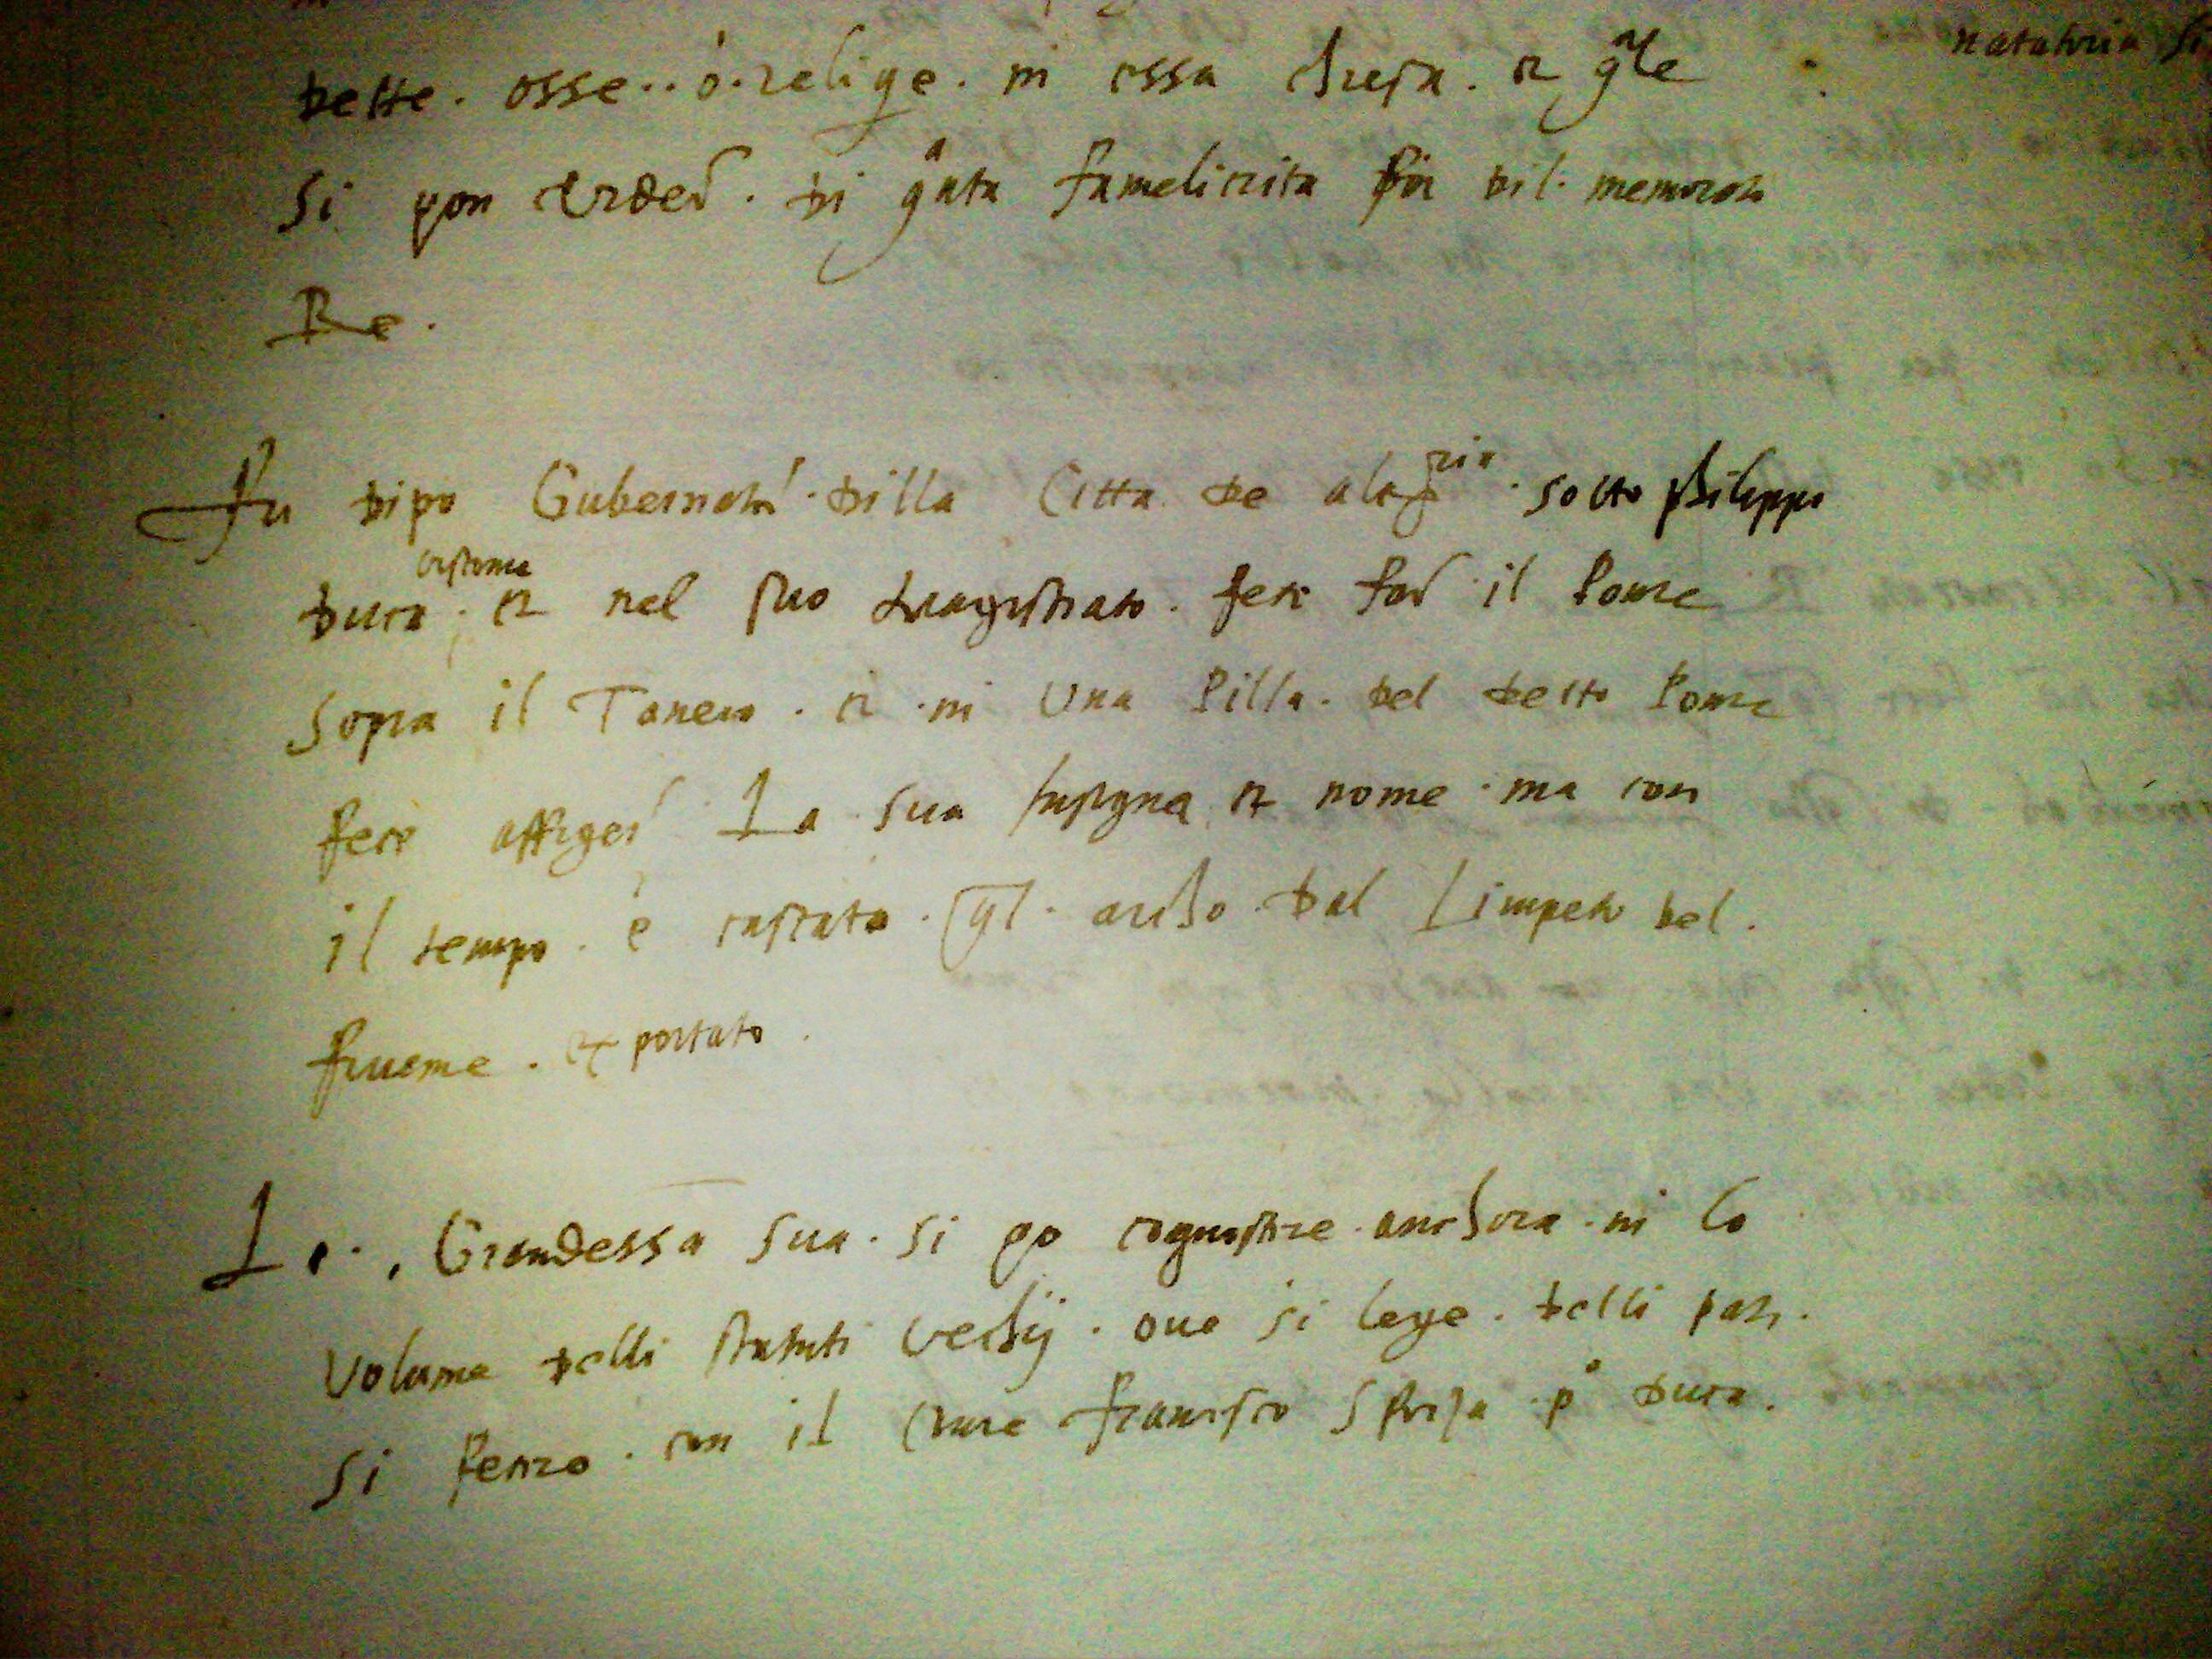 dette. osse.. ò. reliq̃e. in essa chiesa. et q̃le
Si pon creder. di quata famelicita fu dil. memorato
Re.
Fu dipo Gubernator. dilla Citta de aleria. sotto philippo
duca. et nel suo magistrato. fece far il Ponte
Sopra il Tanero. et in Una Pilla. del detto Ponte
fece affiger La sua Insigna et nome. ma con
il tempo. è cascato. ql. archo. dal Limpeto del.
fiueme. et portato.
La. Grandessa Sua. Si po cognoscere. anchora. in Lo
Volume delli statuti Vechij. oue si lege. delli pati.
Si fenzo. con il Conte francesco Sforza. pº duca.